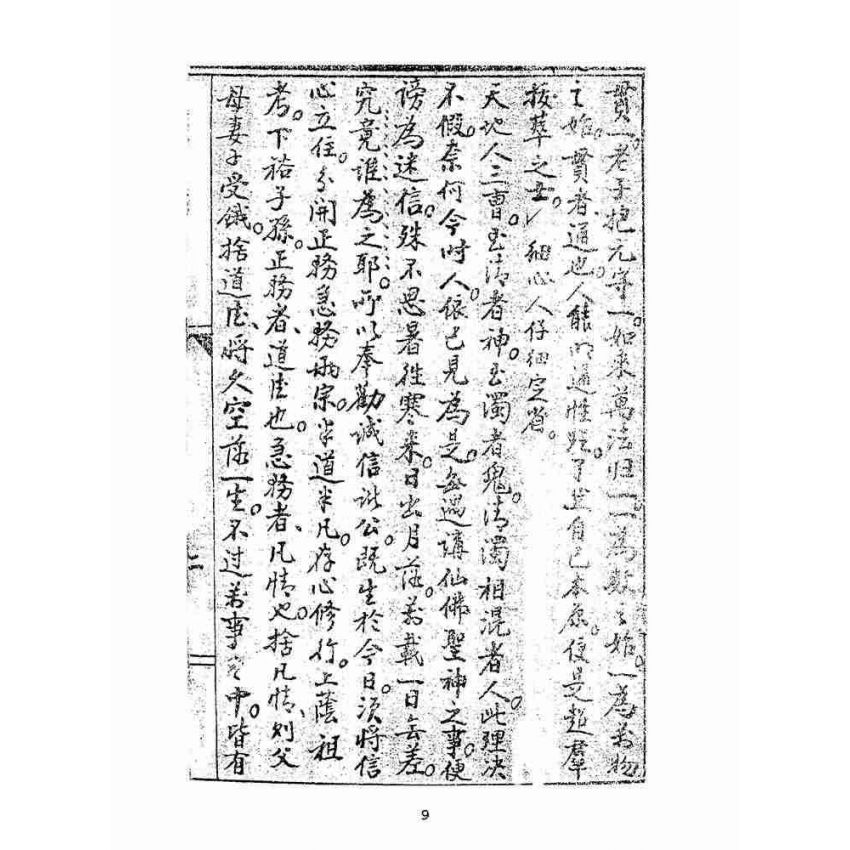 貫一。老子抱元守一。如來萬法归一。一為数之始。一為萬物
之始。貫者通也。人能明通性點。了然自己本原。便是超羣
拔萃之士。細心人仔細定省。
天地人三曹。至清者神。至濁者鬼。清濁相混者人。此理决
不假。奈何今時人。依己見為是。每遇講仙佛聖神之事。便
謗為迷信。殊不思暑徃寒来。日出月落。萬載一日無差。
究竟誰為之耶。所以奉勸誠信諸公。既生於今日。須將信
心立住。分開正務急務兩宗。半道半凡。存心修行。上蔭祖
考。下裕子孫。正務者、道法也。急務者、凡情也。捨凡情、则父
母妻子受餓。捨道法、將久空落一生。不过萬事之中。皆有
9